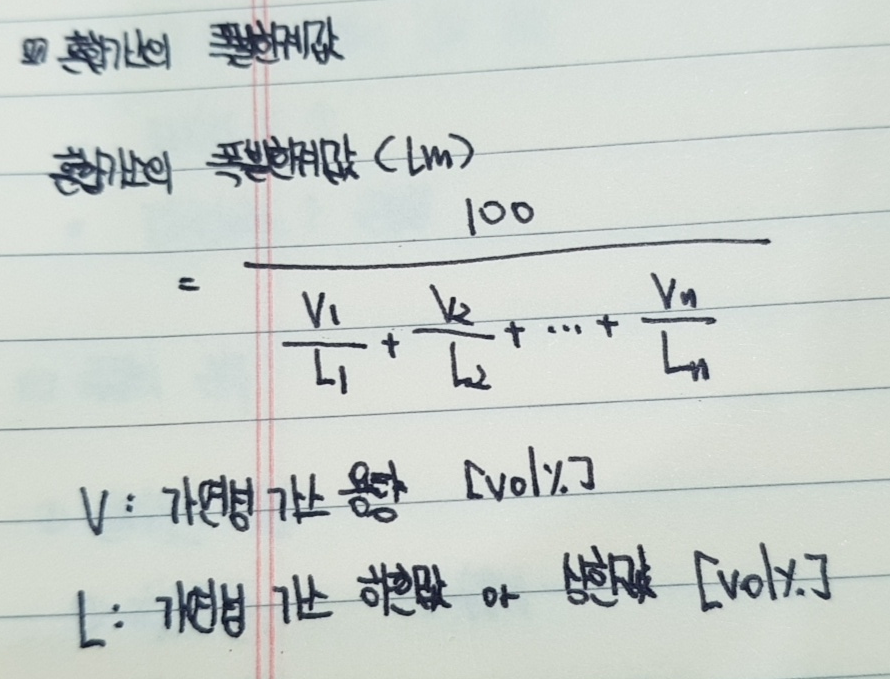 혼합가스의 폭발한계값
혼합가스의 폭발한계값 (Lm)
100
=
V1 V2 Vn
+ + ... +
L1 L2 Ln
V : 가연성 가스 용량 [vol%]
L : 가연성 가스 하한값 or 상한값 [vol%]